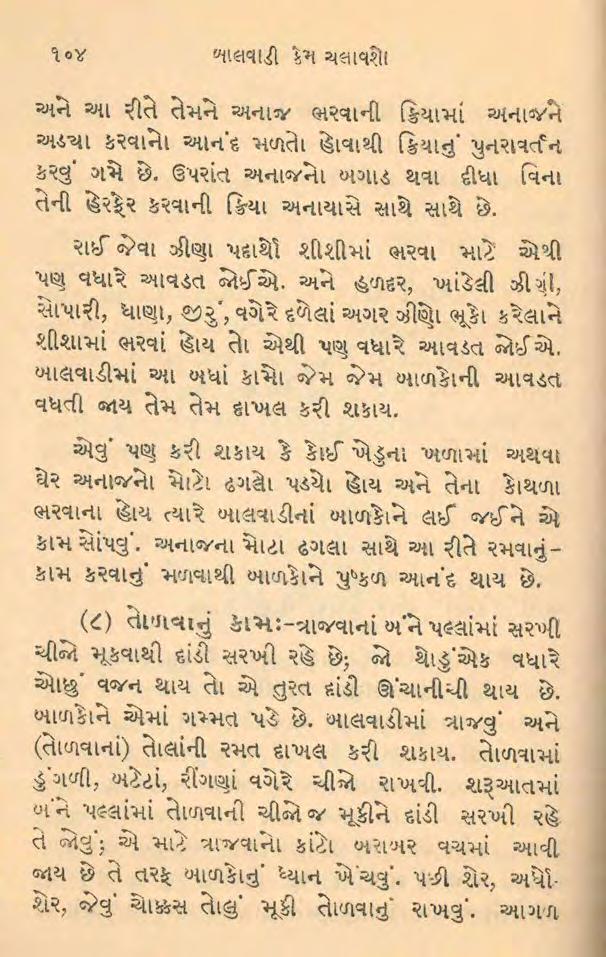 ૧૦૪ બાલવાડી કેમ ચલાવશો
અને આ રીતે તેમને અનાજ ભરવાની ક્રિયામાં અનાજને
અડચા કરવાનો આનંદ મળતો હોવાથી ક્રિયાનું પુનરાવર્તન
કરવું ગમે છે. ઉપરાંત અનાજનો બગાડ થવા દીધા વિના
તેની હેરફેર કરવાની ક્રિયા અનાયાસે સાથે સાથે છે.
રાઈ જેવા ઝીણા પદાર્થો શીશીમાં ભરવા માટે એથી
પણ વધારે આવડત જોઈએ. અને હળદર, ખાંડેલી ઝીણી,
સોપારી, ધાણા, જીરું, વગેરે દળેલાં અગર ઝીણો ભૂકો કરેલાને
શીશામાં ભરવાં હોય તો એથી પણ વધારે આવડત જોઈએ.
બાલવાડીમાં આ બધાં કામો જેમ જેમ બાળકોની આવડત
વધતી જાય તેમ તેમ દાખલ કરી શકાય.
એવું પણ કરી શકાય કે કોઈ ખેડુના ખળામાં અથવા
ઘેર અનાજનો મોટો ઢગલો પડયો હોય અને તેના કોથળા
ભરવાના હોય ત્યારે બાલવાડીનાં બાળકોને લઈ જઈને એ
કામ સોંપવું. અનાજના મોટા ઢગલા સાથે આ રીતે રમવાનું–
કામ કરવાનું મળવાથી બાળકોને પુષ્કળ આનંદ થાય છે.
(૮) તોળવાનું કામઃ–ત્રાજવાનાં બંને પલ્લાંમાં સરખી
ચીજો મૂકવાથી દાંડી સરખી રહે છે; જો થોડુંએક વધારે
ઓછું વજન થાય તો એ તુરત દાંડી ઊંચાનીચી થાય છે.
બાળકોને એમાં ગમ્મત પડે છે. બાલવાડીમાં ત્રાજવું અને
(તોળવાનાં) તોલાંની રમત દાખલ કરી શકાય. તોળવામાં
ડુંગળી, બટેટાં, રીંગણાં વગેરે ચીજો રાખવી. શરૂઆતમાં
બંને પલ્લાંમાં તોળવાની ચીજો જ મૂકીને દાંડી સરખી રહે
તે જોવું; એ માટે ત્રાજવાનો કાંટો બરાબર વચમાં આવી
જાય છે તે તરફ બાળકોનું ધ્યાન ખેંચવું. પછી શેર, અર્ધો-
શેર, જેવું ચોક્કસ તોલું મૂકી તોળવાનું રાખવું. આગળ